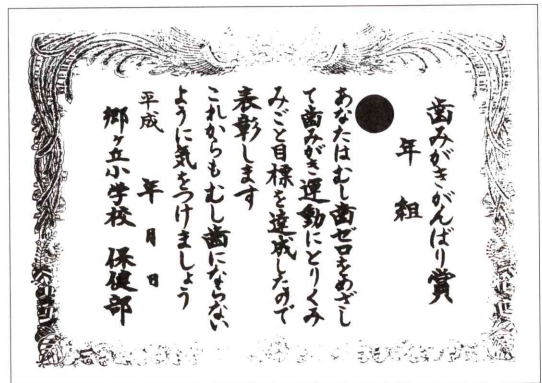 歯みがきがんばり賞
年 組
あなたはむし歯ゼロをめざし
て歯みがき運動にとりくみ
みごと目標を達成したので
表彰します
これからもむし歯にならない
ように気をつけましょう
平成 年 月 日
郷ヶ丘小学校 保健部